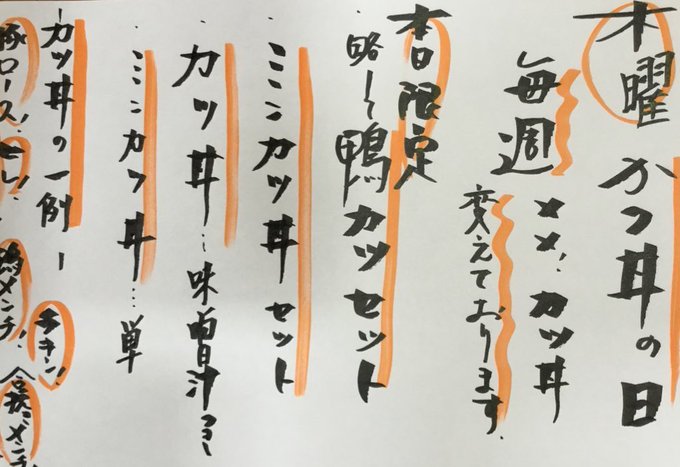 木曜 かつ丼の日
毎週 メメ、カツ丼
変えております。
本日限定
略して鴨カツセット
ミニカツ丼セット
カツ丼…味噌汁つき
ミニカツ丼…単
カツ丼の一例ー
チキン!
豚ロース! ヒレ! 鴨メンチ! 合挽メンチ